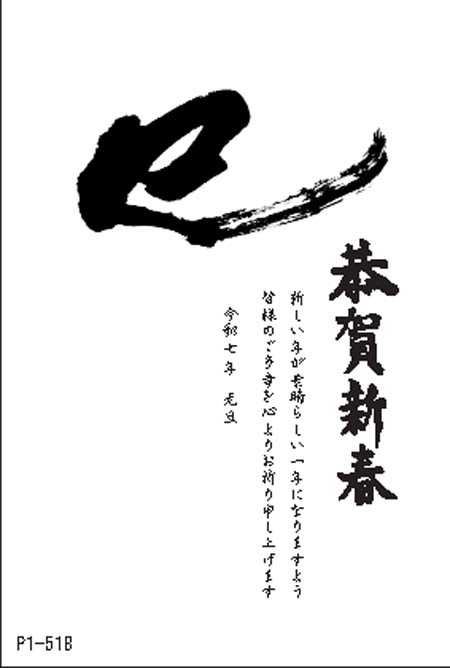 巳
恭賀新春
新しい年が素晴らしい一年になりますよう
皆様のご多幸を心よりお祈り申し上げます
令和七年 元旦
P1-51B